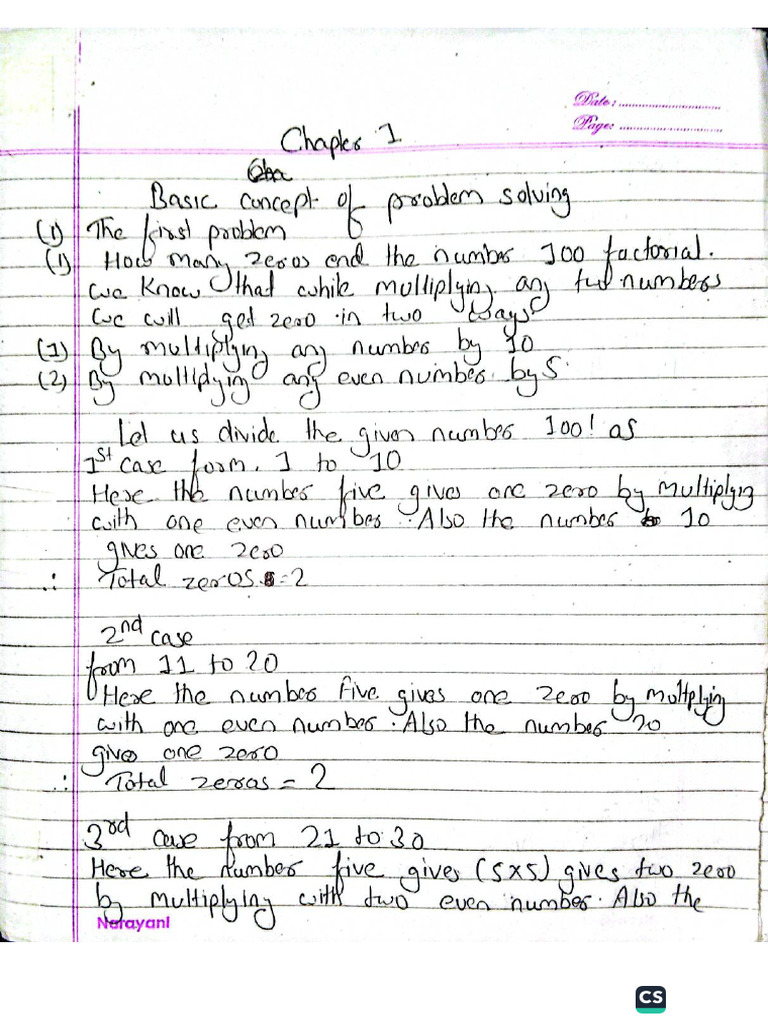 Date: ..............................
Page: ..............................
Chapter 1
Cha
Basic concept of problem solving
(1) The first problem
(1) How many zeros end the number 100 factorial.
we know that while multiplying any two numbers
we will get zero in two ways
(1) By multiplying any number by 10
(2) By multiplying any even number by 5
Let us divide the given number 100! as
1st case form. 1 to 10
Here the number five gives one zero by multiplying
with one even number. Also the number 10
gives one zero
∴ Total zeros = 2
2nd case
from 11 to 20
Here the number five gives one zero by multplying
with one even number. Also the number 20
gives one zero
∴ Total zeros = 2
3rd case from 21 to 30
Here the number five gives (5x5) gives two zero
by multiplying with two even number. Also the
Narayani
CS